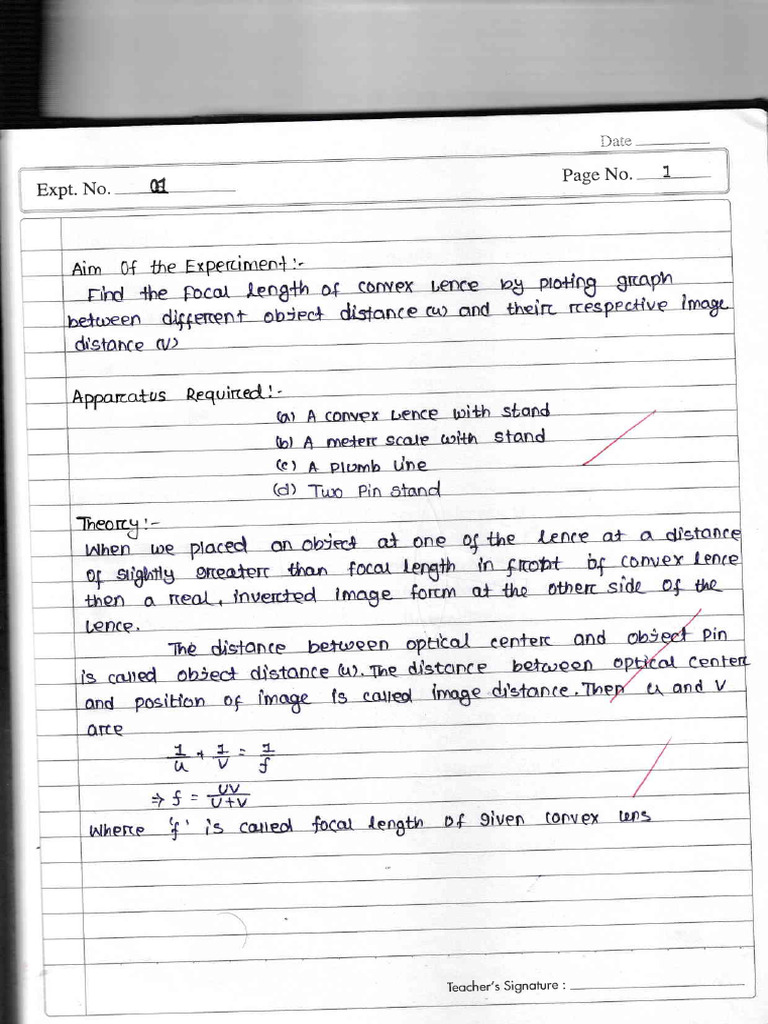 Date
Expt. No. 01
Page No. 1
Aim Of the Experiment:-
Find the focal length of convex lence by ploting graph
between different object distance (u) and their respective image
distance (V)
Apparatus Required:-
(a) A convex lence with stand
(b) A meter scale with stand
(c) A plumb line
(d) Two Pin stand
Theory:-
When we placed an object at one of the lence at a distance
of slightly greater than focal length in front of convex lence
then a real, inverted image form at the other side of the
lence.
The distance between optical center and object pin
is called object distance (u). The distance between optical center
and position of image is called image distance. Then u and V
are
1/u + 1/v = 1/f
⇒ f = UV/U+V
Where 'f' is called focal length of given convex lens
Teacher's Signature :